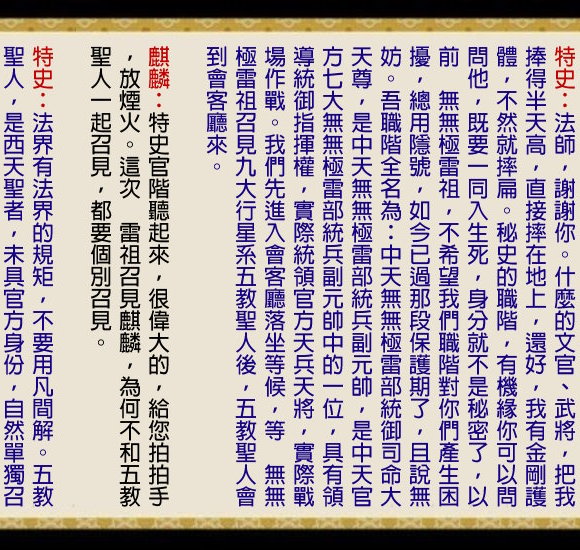 特史：法師，謝謝你。什麼的文官、武將，把我
捧得半天高，直接摔在地上，還好，我有金剛護
體，不然就摔扁。秘史的職階，有機緣你可以問
問他，既要一同入生死，身分就不是秘密了，以
前　無無極雷祖，不希望我們職階對你們產生困
擾，總用隱號，如今已過那段保護期了，且說無
妨。吾職階全名為：中天無無極雷部統御司命大
天尊，是中天無無極雷部統兵副元帥，是中天官
方七大無無極雷部統兵副元帥中的一位，具有領
導統御指揮權，實際統領官方天兵天將，實際戰
場作戰。我們先進入會客廳落坐等候，等　無無
極雷祖召見九大行星系五教聖人後，五教聖人會
到會客廳來。
麒麟：特史官階聽起來，很偉大的，給您拍拍手
，放煙火。這次　雷祖召見麒麟，為何不和五教
聖人一起召見，都要個別召見。
特史：法界有法界的規矩，不要用凡間解。五教
聖人，是西天聖者，未具官方身份，自然單獨召